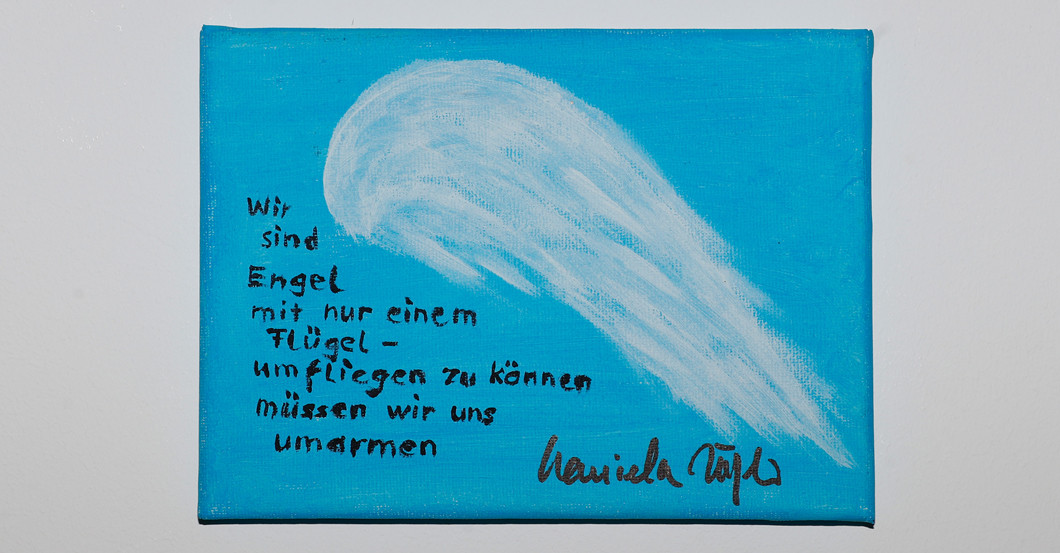 Wir
sind
Engel
mit nur einem
Flügel -
um fliegen zu können
müssen wir uns
umarmen
Daniela